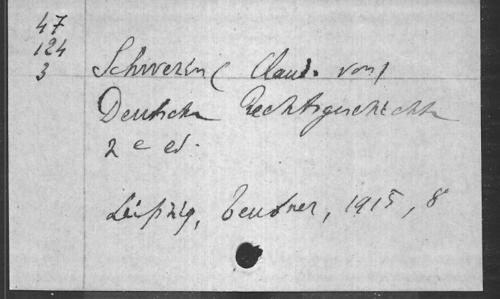 47
124
3
Schwerin (Claud. von)
Deutsche Rechtsgeschichte
2e ed.
Leipzig, Teubner, 1915, 8°